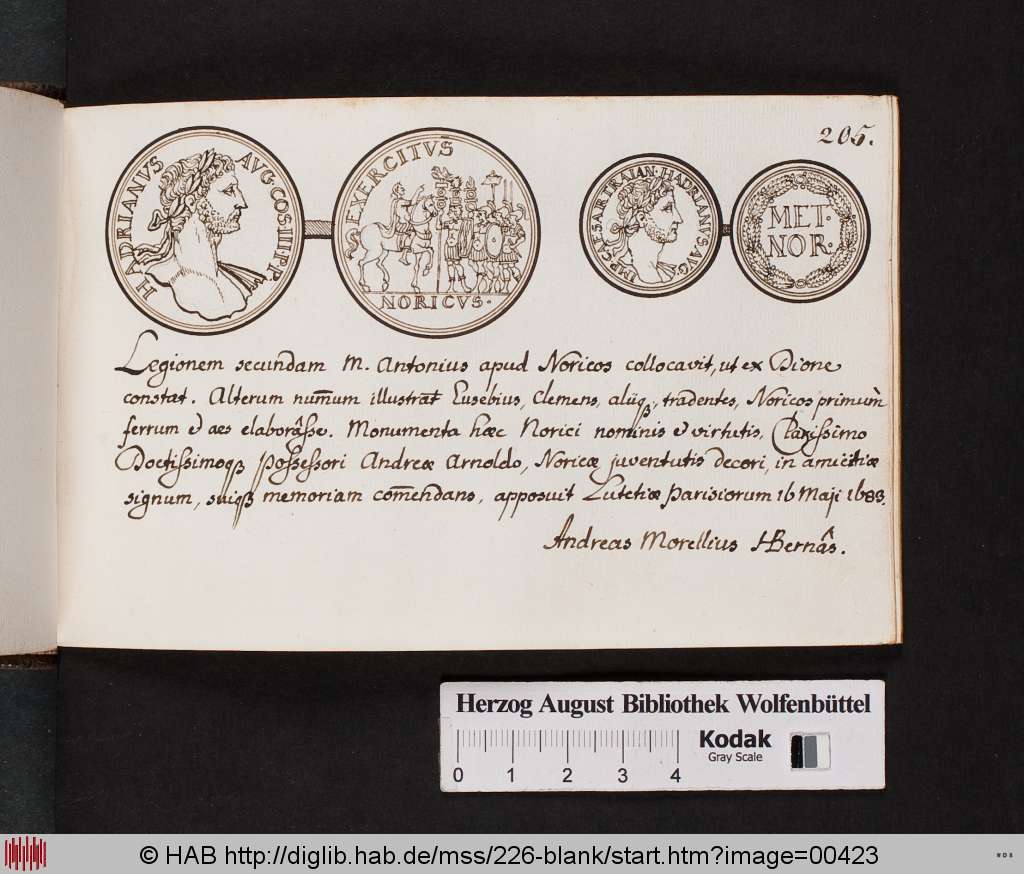 205.
HADRIANVS AVG·COS·IIII·P·P·
EXERCITVS
NORICVS·
IMP·CAESAR TRAIAN·HADRIANVS·AVG·
MET·
NOR·
Legionem secundam M. Antonius apud Noricos collocavit, ut ex Dione
constat. Alterum num̄um illustrat̄ Eusebius, Clemens, aliiq₃, tradentes, Noricos primum
ferrum & aes elaborâsse. Monumenta hæc Norici nominis & virtutis, Clarissimo
Doctissimoq₃ possessori Andreæ Arnoldo, Noricæ juventutis decori, in amicitiæ
signum, suiq₃ memoriam com̄endans, apposuit Lutetiæ Parisiorum 16 Maji 1683.
Andreas Morellius Bernâs.
Herzog August Bibliothek Wolfenbüttel
0 1 2 3 4
Kodak
Gray Scale
© HAB http://diglib.hab.de/mss/226-blank/start.htm?image=00423
WDB